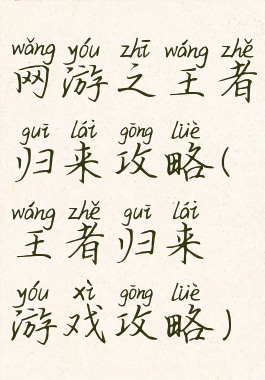 wǎng yóu zhī wáng zhě
网游之王者
guī lái gōng lüè
归来攻略(
wáng zhě guī lái
王者归来
yóu xì gōng lüè
游戏攻略)